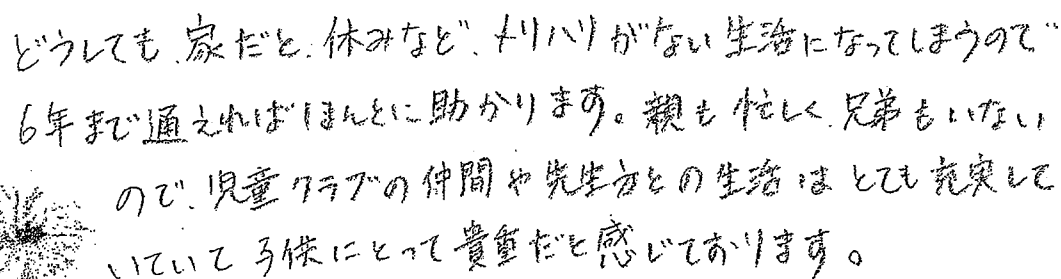 どうしても、家だと、休みなど、メリハリがない生活になってしまうので
6年まで通えればほんとに助かります。親も忙しく、兄弟もいない
ので、児童クラブの仲間や先生方との生活はとても充実して
いていて子供にとって貴重だと感じております。